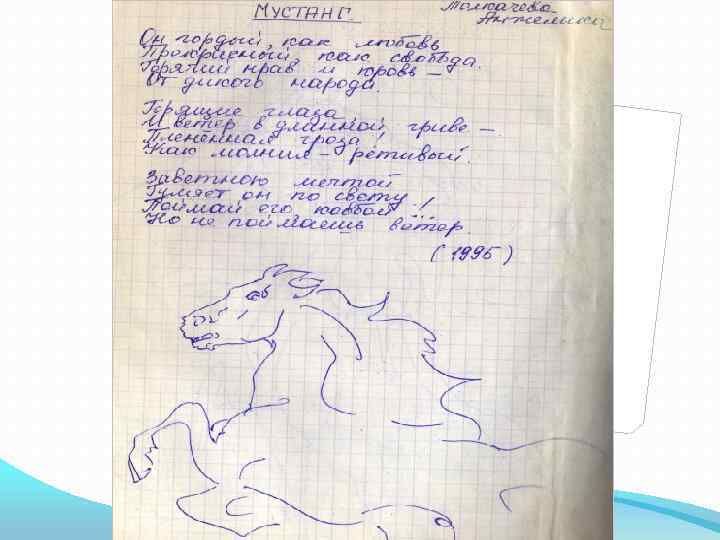 Мустанг
Толкачева
Анжелика
Он гордый, как любовь,
Прокрасный, как свобода.
Горячий нрав и кровь –
От дикого народа.
Горящие глаза,
И ветер в длинной гриве –
Пленённая гроза!
Как молния – ретивый.
Заветною мечтой
Гуляет он по свету.
Поймай его, ковбой...!
Но не поймаешь ветер.
(1995)